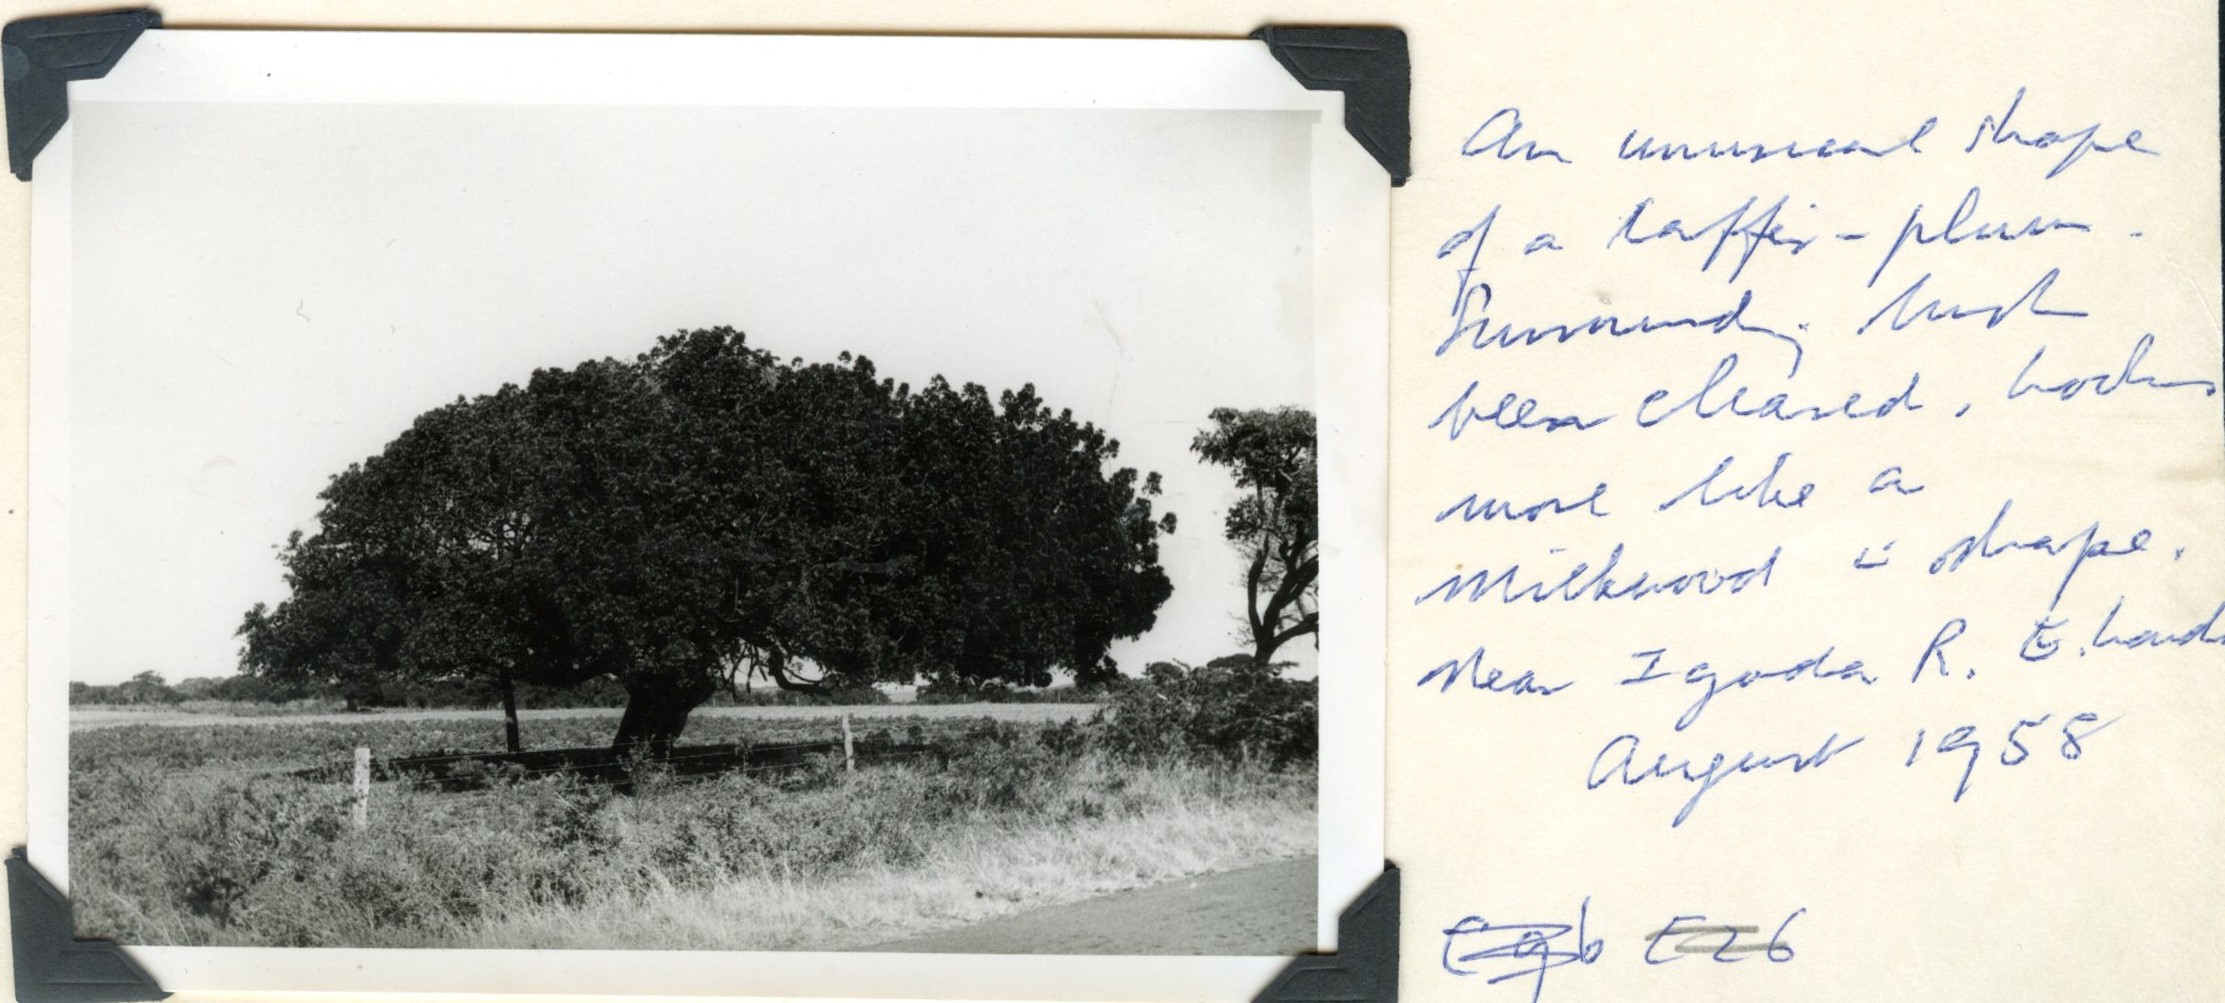 An unusual shape
of a kaffir-plum.
Surrounding bush
been cleared, looks
more like a
milkwood in shape.
Near Igoda R. E. London
August 1958
E26